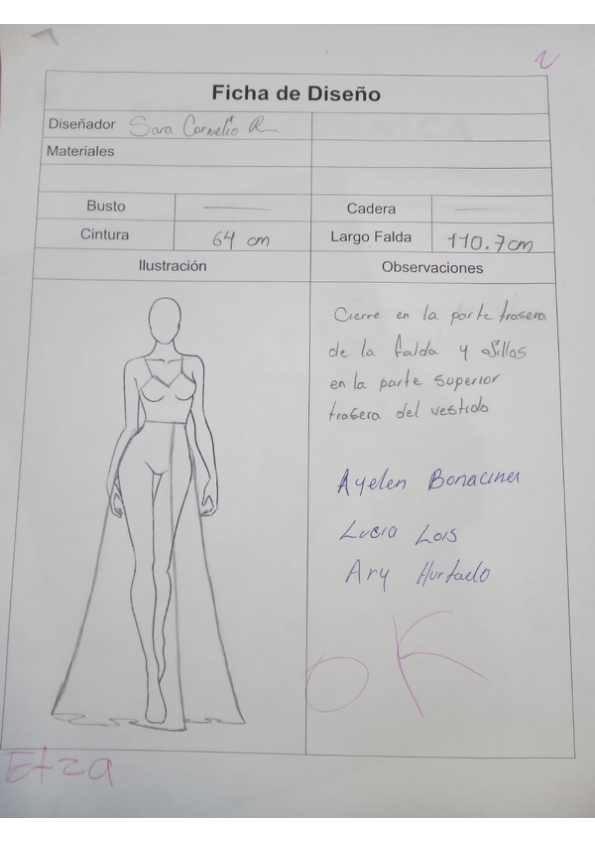 Ficha de Diseño
Diseñador Sara Cornelio R
Materiales
Busto Cadera
Cintura 64 cm Largo Falda 110.7cm
Ilustración Observaciones
Cierre en la parte trasera
de la falda y
en la parte superior
trasera del vestido
Ayelen Bonaciner
Lucio Lois
Ary Hurtado
OK
Etza